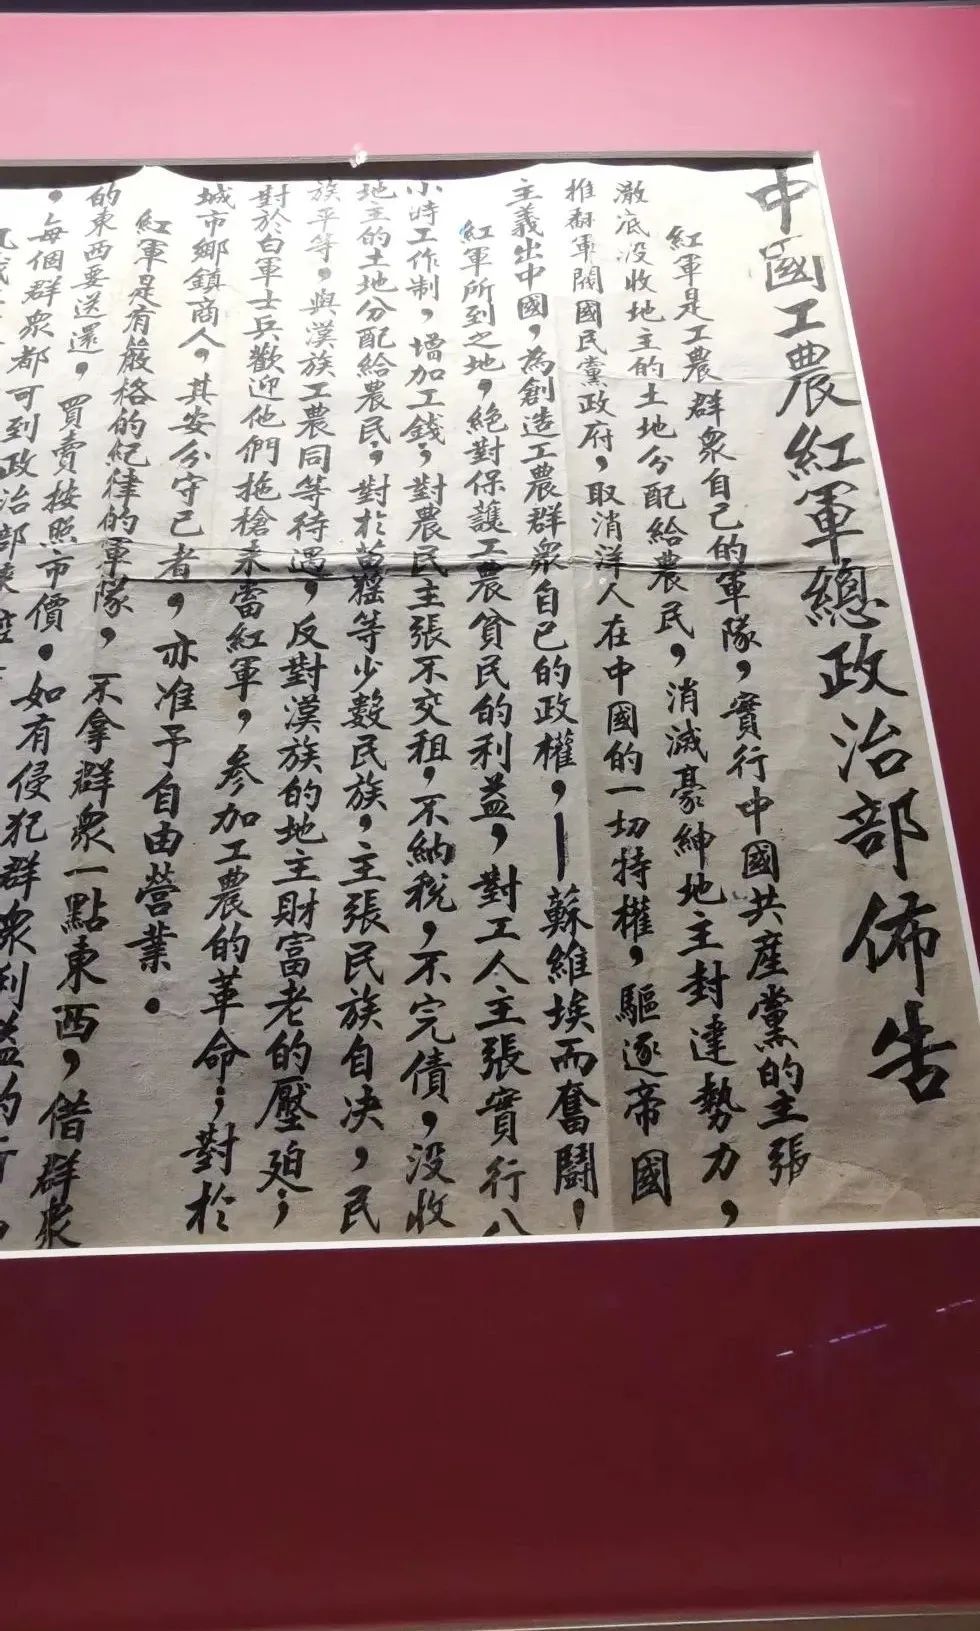 中國工農紅軍總政治部佈告
紅軍是工農群衆自己的軍隊，實行中國共產黨的主張
澈底没收地主的土地分配給農民，消滅豪紳地主封建勢力，
推翻軍閥國民黨政府，取消洋人在中國的一切特權，驅逐帝國
主義出中國，為創造工農群衆自己的政權，—蘇維埃而奮鬪！
紅軍所到之地，絶對保護工農貧民的利益，對工人主張實行八
小時工作制，增加工錢；對農民主張不交租，不納税，不完債，没收
地主的土地分配給農民，對於苗猺等少數民族，主張民族自决，民
族平等，與漢族工農同等待遇，反對漢族的地主財富老的壓廹；
對於白軍士兵歡迎他們拖槍来當紅軍，参加工農的革命；對於
城市鄉鎮商人，其安分守己者，亦准予自由營業。
紅軍是有嚴格的紀律的軍隊，不拿群衆一點東西，借群衆
的東西要送還，買賣按照市價。如有侵犯群衆利益的行
，每個群衆都可到政治部来